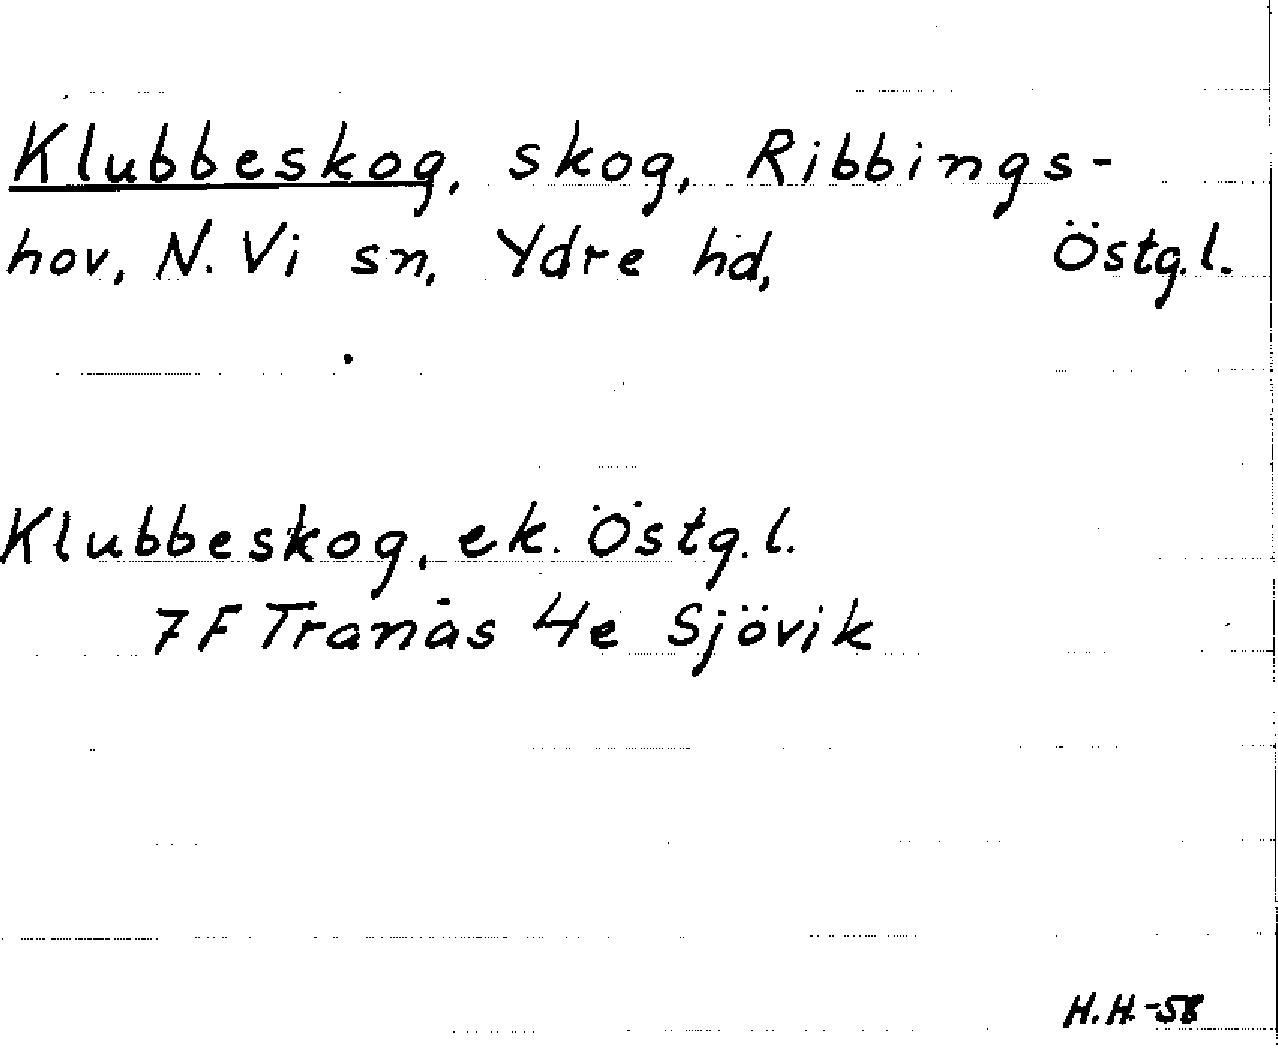 Klubbeskog, skog, Ribbings-
hov, N. Vi sn, Ydre hd, Östg.l.
Klubbeskog, ek. Östg.l.
7F Tranås 4e Sjövik
H.H.-58